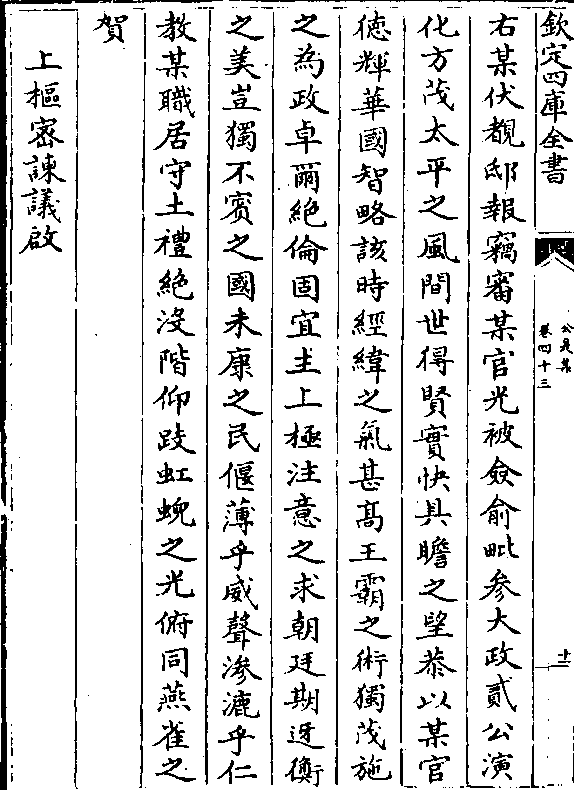 欽定四庫全書
公是集
卷四十三
十二
右某伏覩邸報竊審某官光被僉俞毗參大政貳公演
化方茂太平之風間世得賢實快具瞻之望恭以某官
德輝華國智略該時經緯之氣甚髙王霸之術獨茂施
之為政卓爾絶倫固宜主上極注意之求朝廷期迓衡
之美豈獨不賓之國未康之民偃薄乎威聲滲漉乎仁
教某職居守土禮絶没階仰跂虹蜺之光俯同燕雀之
賀
上樞密諫議啟